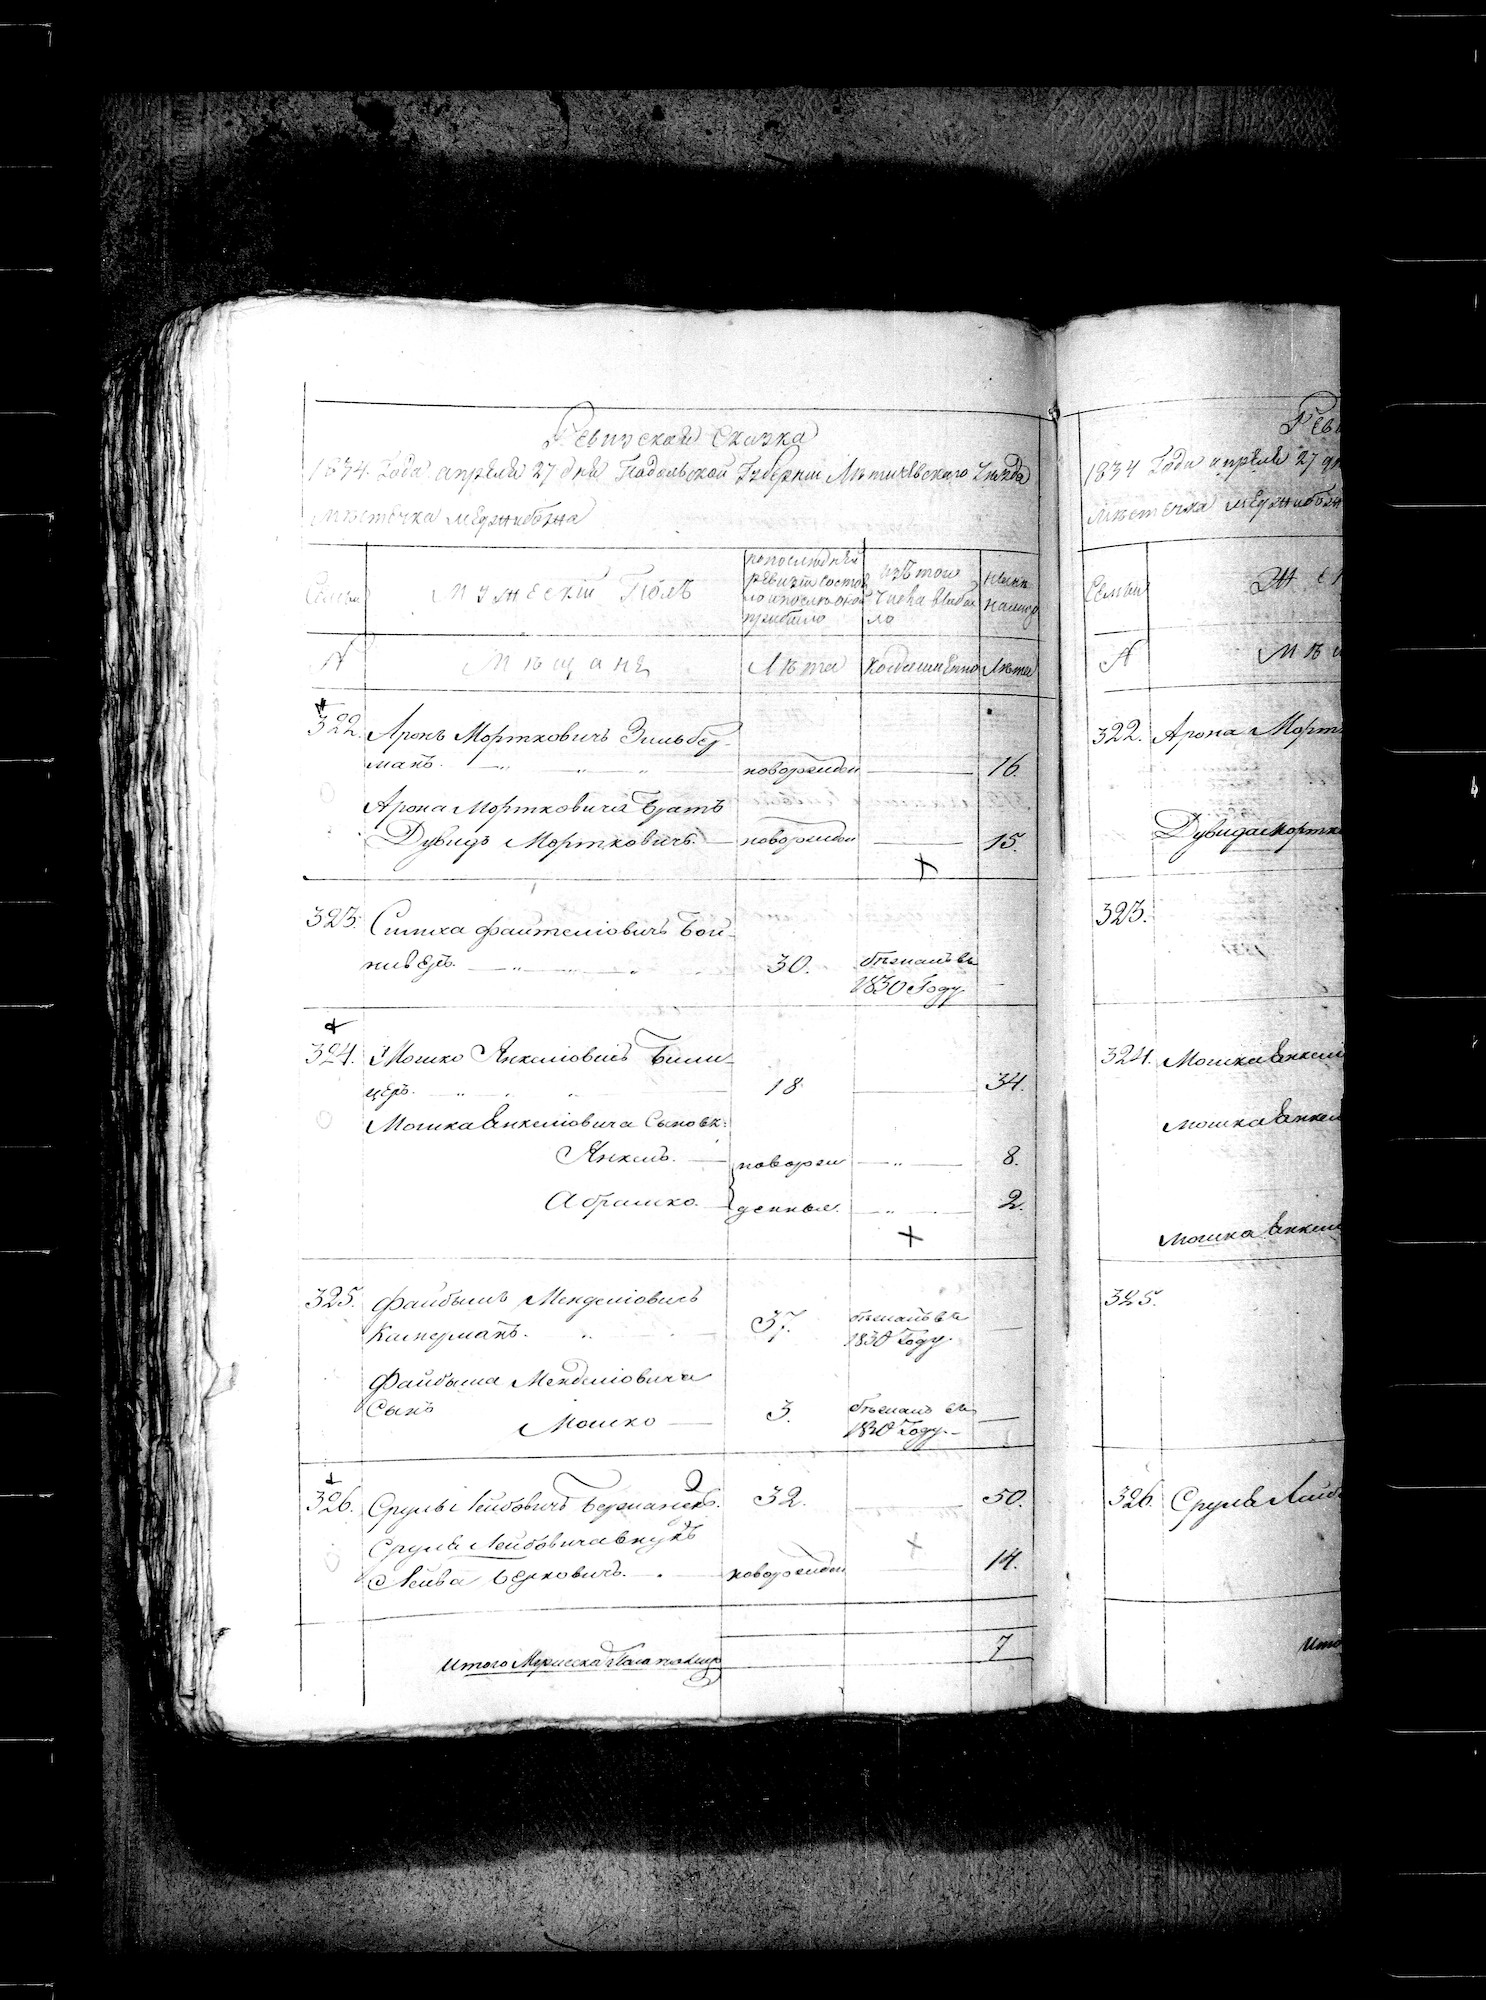 Ревизская Сказка
1834 Года апреля 27 дня Подольской Губернии Летичевского Уезда
местечка Меджибожа
Семьи
Мужеский Полъ
по последней
ревизіи состоя
ло и после оной
прибыло
изъ того
числа выбы
ло
ныне
налицо
№
Мещане
Лета
Когда именно
Лета
322. Аронъ Мортковичъ Зильбер-
манъ. новорожден 16.
Арона Мортковича Братъ
Дувидъ Мортковичъ. новорожден 15.
323. Симха Файтеліовичъ Бой-
30. бежалъ въ
1830 Году
324. Мошко Янкеліовичъ
церъ. 18 34.
Мошка Янкеліовича Сыновья:
Янкель. новорож 8.
Абрашко. денные. 2.
325. Файбышъ Менделіовичъ
37. бежалъ въ
1830 Году.
Файбыша Менделіовича
Сынъ Мошко 3. бежалъ въ
1830 Году.
326. Сруль Лейбовичъ 32. 50.
Сруля Лейбовича внукъ
Лейба Берковичъ. новорожден 14.
Итого Мужеска Пола налицо 7
1834 Года апреля 27 дн
местечка Меджибож
Семьи
№
322. Арона Морт
Дувида Мортк
323.
324. Мошка Янкелі
Мошка Янкел
Мошка Янкел
325.
326. Сруля Лейб